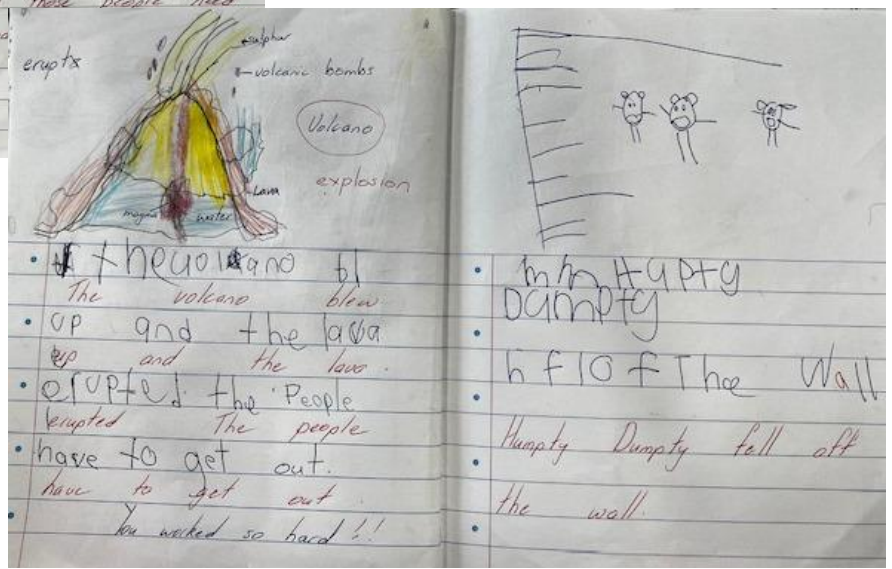 those people need
erupts
sulphar
volcanic bombs
Volcano
explosion
Lava
magma water
thevolcano bl
The volcano blew
up and the lava
up and the lava.
erupted. the People
erupted The people
have to get out.
have to get out.
You worked so hard!!
mm Hupty
Dumpty
h f lOf The Wall
Humpty Dumpty fell off
the wall.